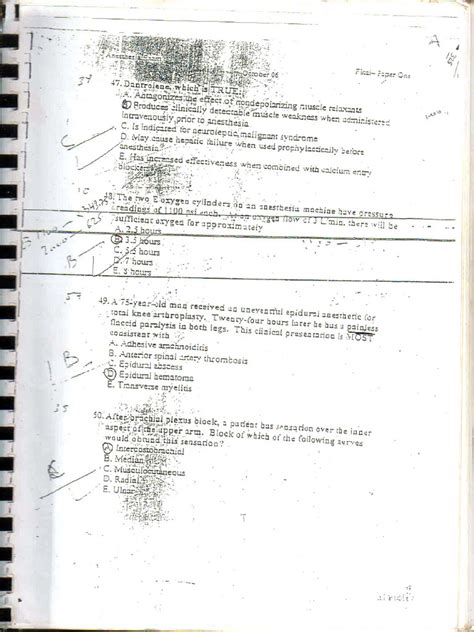 A
October 06 Final- Paper One
37
47. Dantrolene, which is TRUE:
A. Antagonizes the effect of nondepolarizing muscle relaxants
B Produces clinically detectable muscle weakness when administered
intravenously prior to anesthesia
C. Is indicated for neuroleptic malignant syndrome
D. May cause hepatic failure when used prophylactically before
anesthesia
E. Has increased effectiveness when combined with calcium entry
blockers
C
48. The two E oxygen cylinders on an anesthesia machine have pressure
readings of 1100 psi each. At an oxygen flow of 3 L/min, there will be
sufficient oxygen for approximately
A. 2.5 hours
B. 3.5 hours
C. 5.5 hours
D. 7 hours
E. 8 hours
625
B
49. A 75-year-old man received an uneventful epidural anesthetic for
total knee arthroplasty. Twenty-four hours later he has a painless
flaccid paralysis in both legs. This clinical presentation is MOST
consistent with
A. Adhesive arachnoiditis
B. Anterior spinal artery thrombosis
C. Epidural abscess
D Epidural hematoma
E. Transverse myelitis
B
50. After brachial plexus block, a patient has sensation over the inner
aspect of the upper arm. Block of which of the following nerves
would obtund this sensation?
A Intercostobrachial
B. Median
C. Musculocutaneous
D. Radial
E. Ulnar